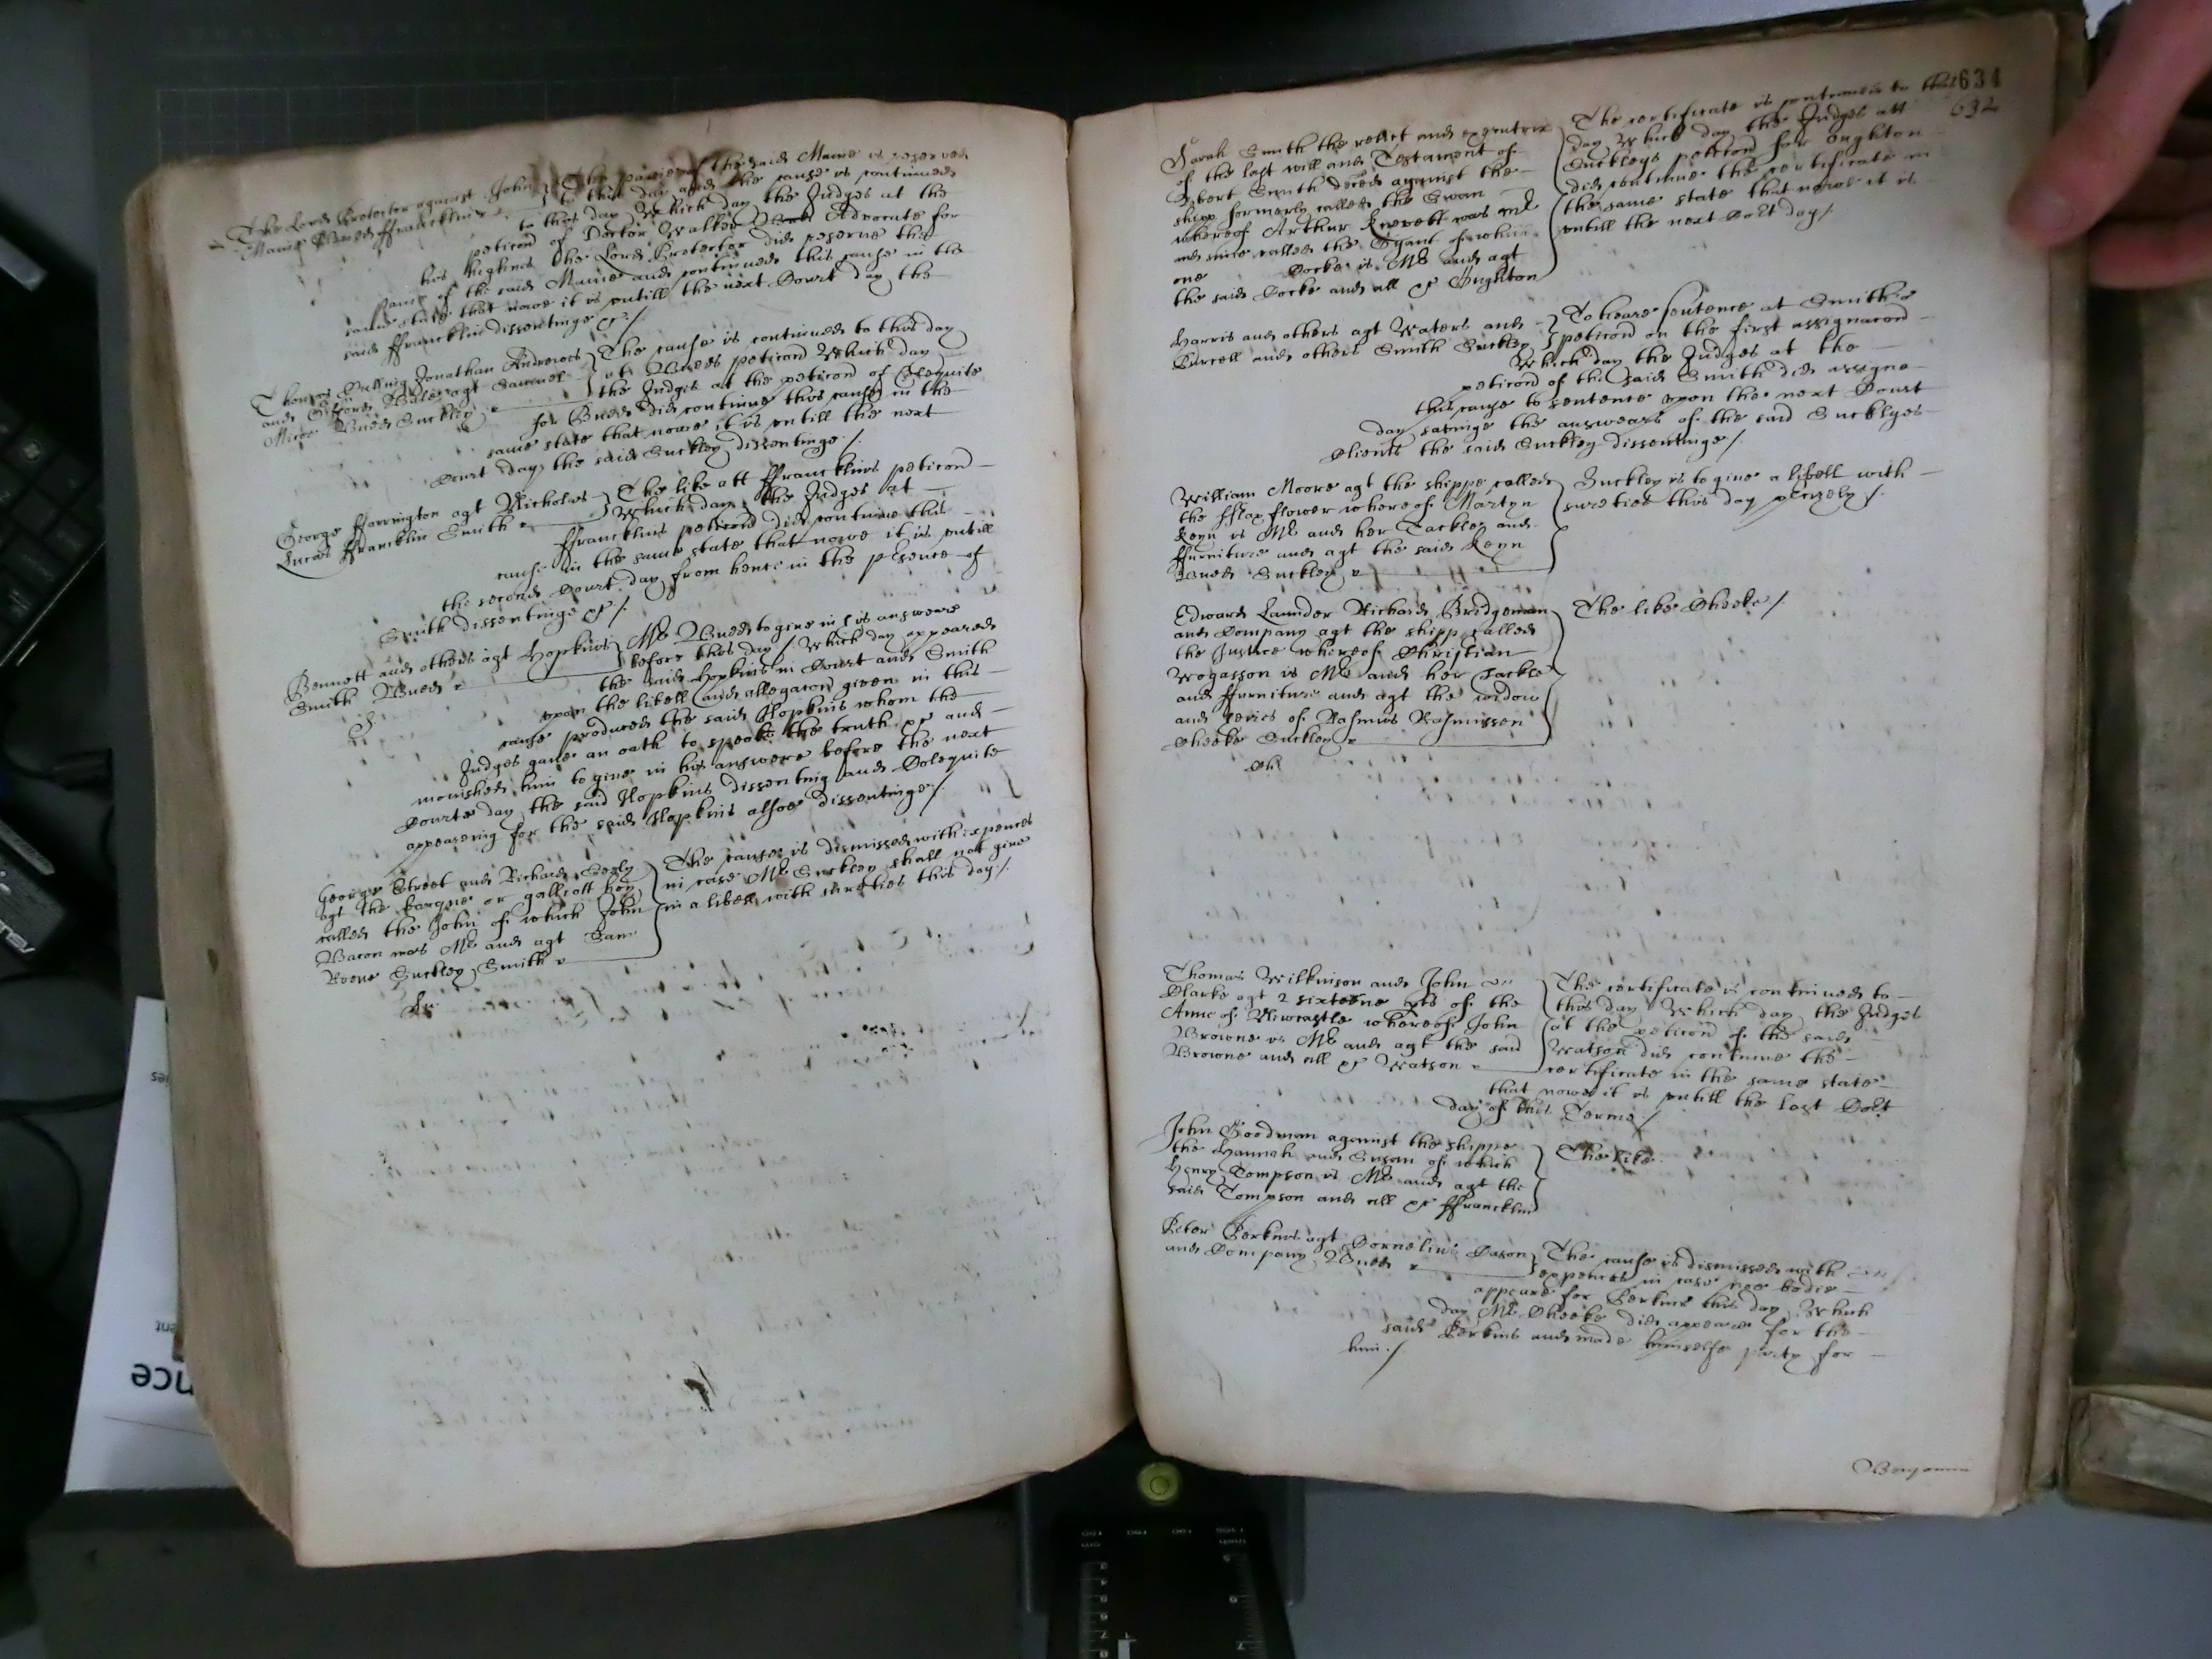 The Lord Protector against John
Maine Budd ffrancklin
The paine of the said Maine is reserved
to this day and the cause is continued
to this day Which day the Judges at the
peticon of Doctor Walker Advocate for
his Highnes the Lord Protector did reserve the
paine of the said Maine and continued this cause in the
same state that nowe it is untill the next Court day the
said ffrancklin dissentinge &c/
Thomas Jonathan Andrewes
and agt Samuel
Micoe Budd Suckley
The cause is continued to this day
at Budds peticon Which day
the Judges at the peticon of Clequite
for Budd did continue this cause in the
same state that nowe it is untill the next
Court day the said Suckley dissentinge /.
George ffarrington agt Nicholas
Lucas ffrancklin Smith
The like att ffrancklins peticon
Which day the Judges at
ffrancklins peticon did continue this
cause in the same state that nowe it is untill
the second Court day from hence in the presence of
Smith dissentinge &c/.
Bennett and others agt Hopkins
Smith Budd
Mr Budd to give in his answeare
before this day / Which day appeared
the said Hopkins in Court and Smith
upon the libell and allegacon given in this
cause produced the said Hopkins whom the
Judges gave an oath to speake the truth &c and
monished him to give in his answere before the next
Courte day the said Hopkins dissentinig and Colequite
appearinig for the said Hopkins alsoe dissentinge/.
George Street and Richard Seely
agt the barque or galliott hoy
called the John of which John
Bacon was Mr and agt Sam
Rone Suckley Smith
The cause is dismissed with expences
in case Mr Suckley shall not give
in a libell with sureties this day./.
634
632
Sarah Smith the relict and executrix
of the last will and Testament of
Robert Smith deced against the
shipp formerly called the Swan
whereof Arthur Knevett was Mr
and nowe called the Gyant of which
one Cocke is Mr and agt
the said Cocke and all &c Oughton
The certificate is continued to this
day Which day the Judges att
Suckleys peticon for Oughton
did continue the certificate in
the same state that nowe it is
untill the next Cort day/.
Harris and others agt Waters and
Purcell and others Smith Suckley
To heare sentence at Smiths
peticon on the first assignacon
Which day the Judges at the
peticon of the said Smith did assigne
this cause to sentence upon the next Court
day savinge the answears of the said Suckleys
Clients the said Suckley dissentinge/.
William Moore agt the shippe called
the fflax flower whereof Martyn
Keyn is Mr and her Tackle and
ffurniture and agt the said Keyn
Budd Suckley
Suckley is to give a libell with
sureties this day precisely/.
Edward Launder Richard Bridgeman
and Company agt the shipp called
the Justice whereof Christian
Wogasson is Mr and her Tackle
and ffurniture and agt the widow
and heires of Rasmus Rasmussen
Cheeke Suckley
The like Cheeke/.
Ch
Thomas Wilkinson and John
Clarke agt 2 sixteene pts of the
Anne of Newcastle whereof John
Browne is Mr and agt the said
Browne and all &c Watson
The certificate is continued to
this day Which day the Judges
at the peticon of the said
Watson did continue the
certificate in the same state
that nowe it is untill the last Cort
day of this Terme/
John Goodman against the shippe
the Hannah and Susan of which
Henry Tompson is Mr and agt the
said Tompson and all &c ffrancklin
The like.
Peter Perkins agt Cornelius Cason
and Company Budd
The cause is dismissed with
expences in case noe bodie
appeare for Perkins this day Which
day Mr Cheeke did appeare for the
said Perkins and made himselfe party for
him./.
Benjamin